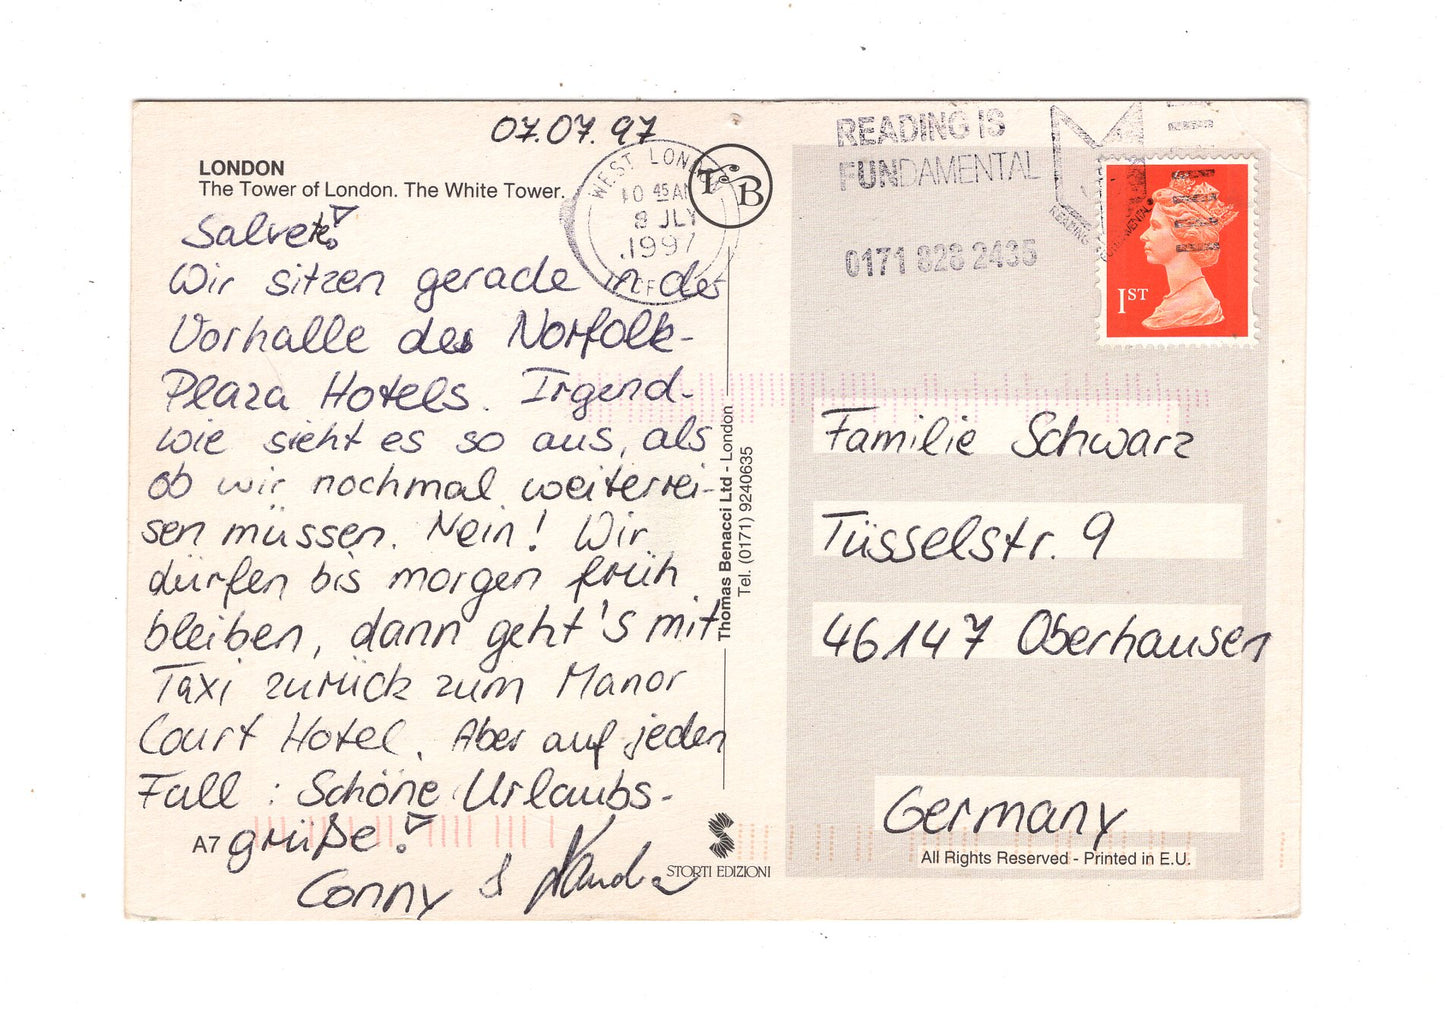 07.07.97
LONDON
The Tower of London. The White Tower.
Salvete!
Wir sitzen gerade in der
Vorhalle des Norfolk-
Plaza Hotels. Irgend-
wie sieht es so aus, als
ob wir nochmal weiterrei-
sen müssen. Nein! Wir
dürfen bis morgen früh
bleiben, dann geht's mit
Taxi zurück zum Manor
Court Hotel. Aber auf jeden
Fall : Schöne Urlaubs-
grüße!
Conny &
A7
WEST LONDON
10 45 AM
8 JLY
1997
TB
Thomas Benacci Ltd - London
Tel. (0171) 9240635
STORTI EDIZIONI
READING IS
FUNDAMENTAL
0171 828 2435
READING IS FUNDAMENTAL
1ST
Familie Schwarz
Tüsselstr. 9
46147 Oberhausen
Germany
All Rights Reserved - Printed in E.U.